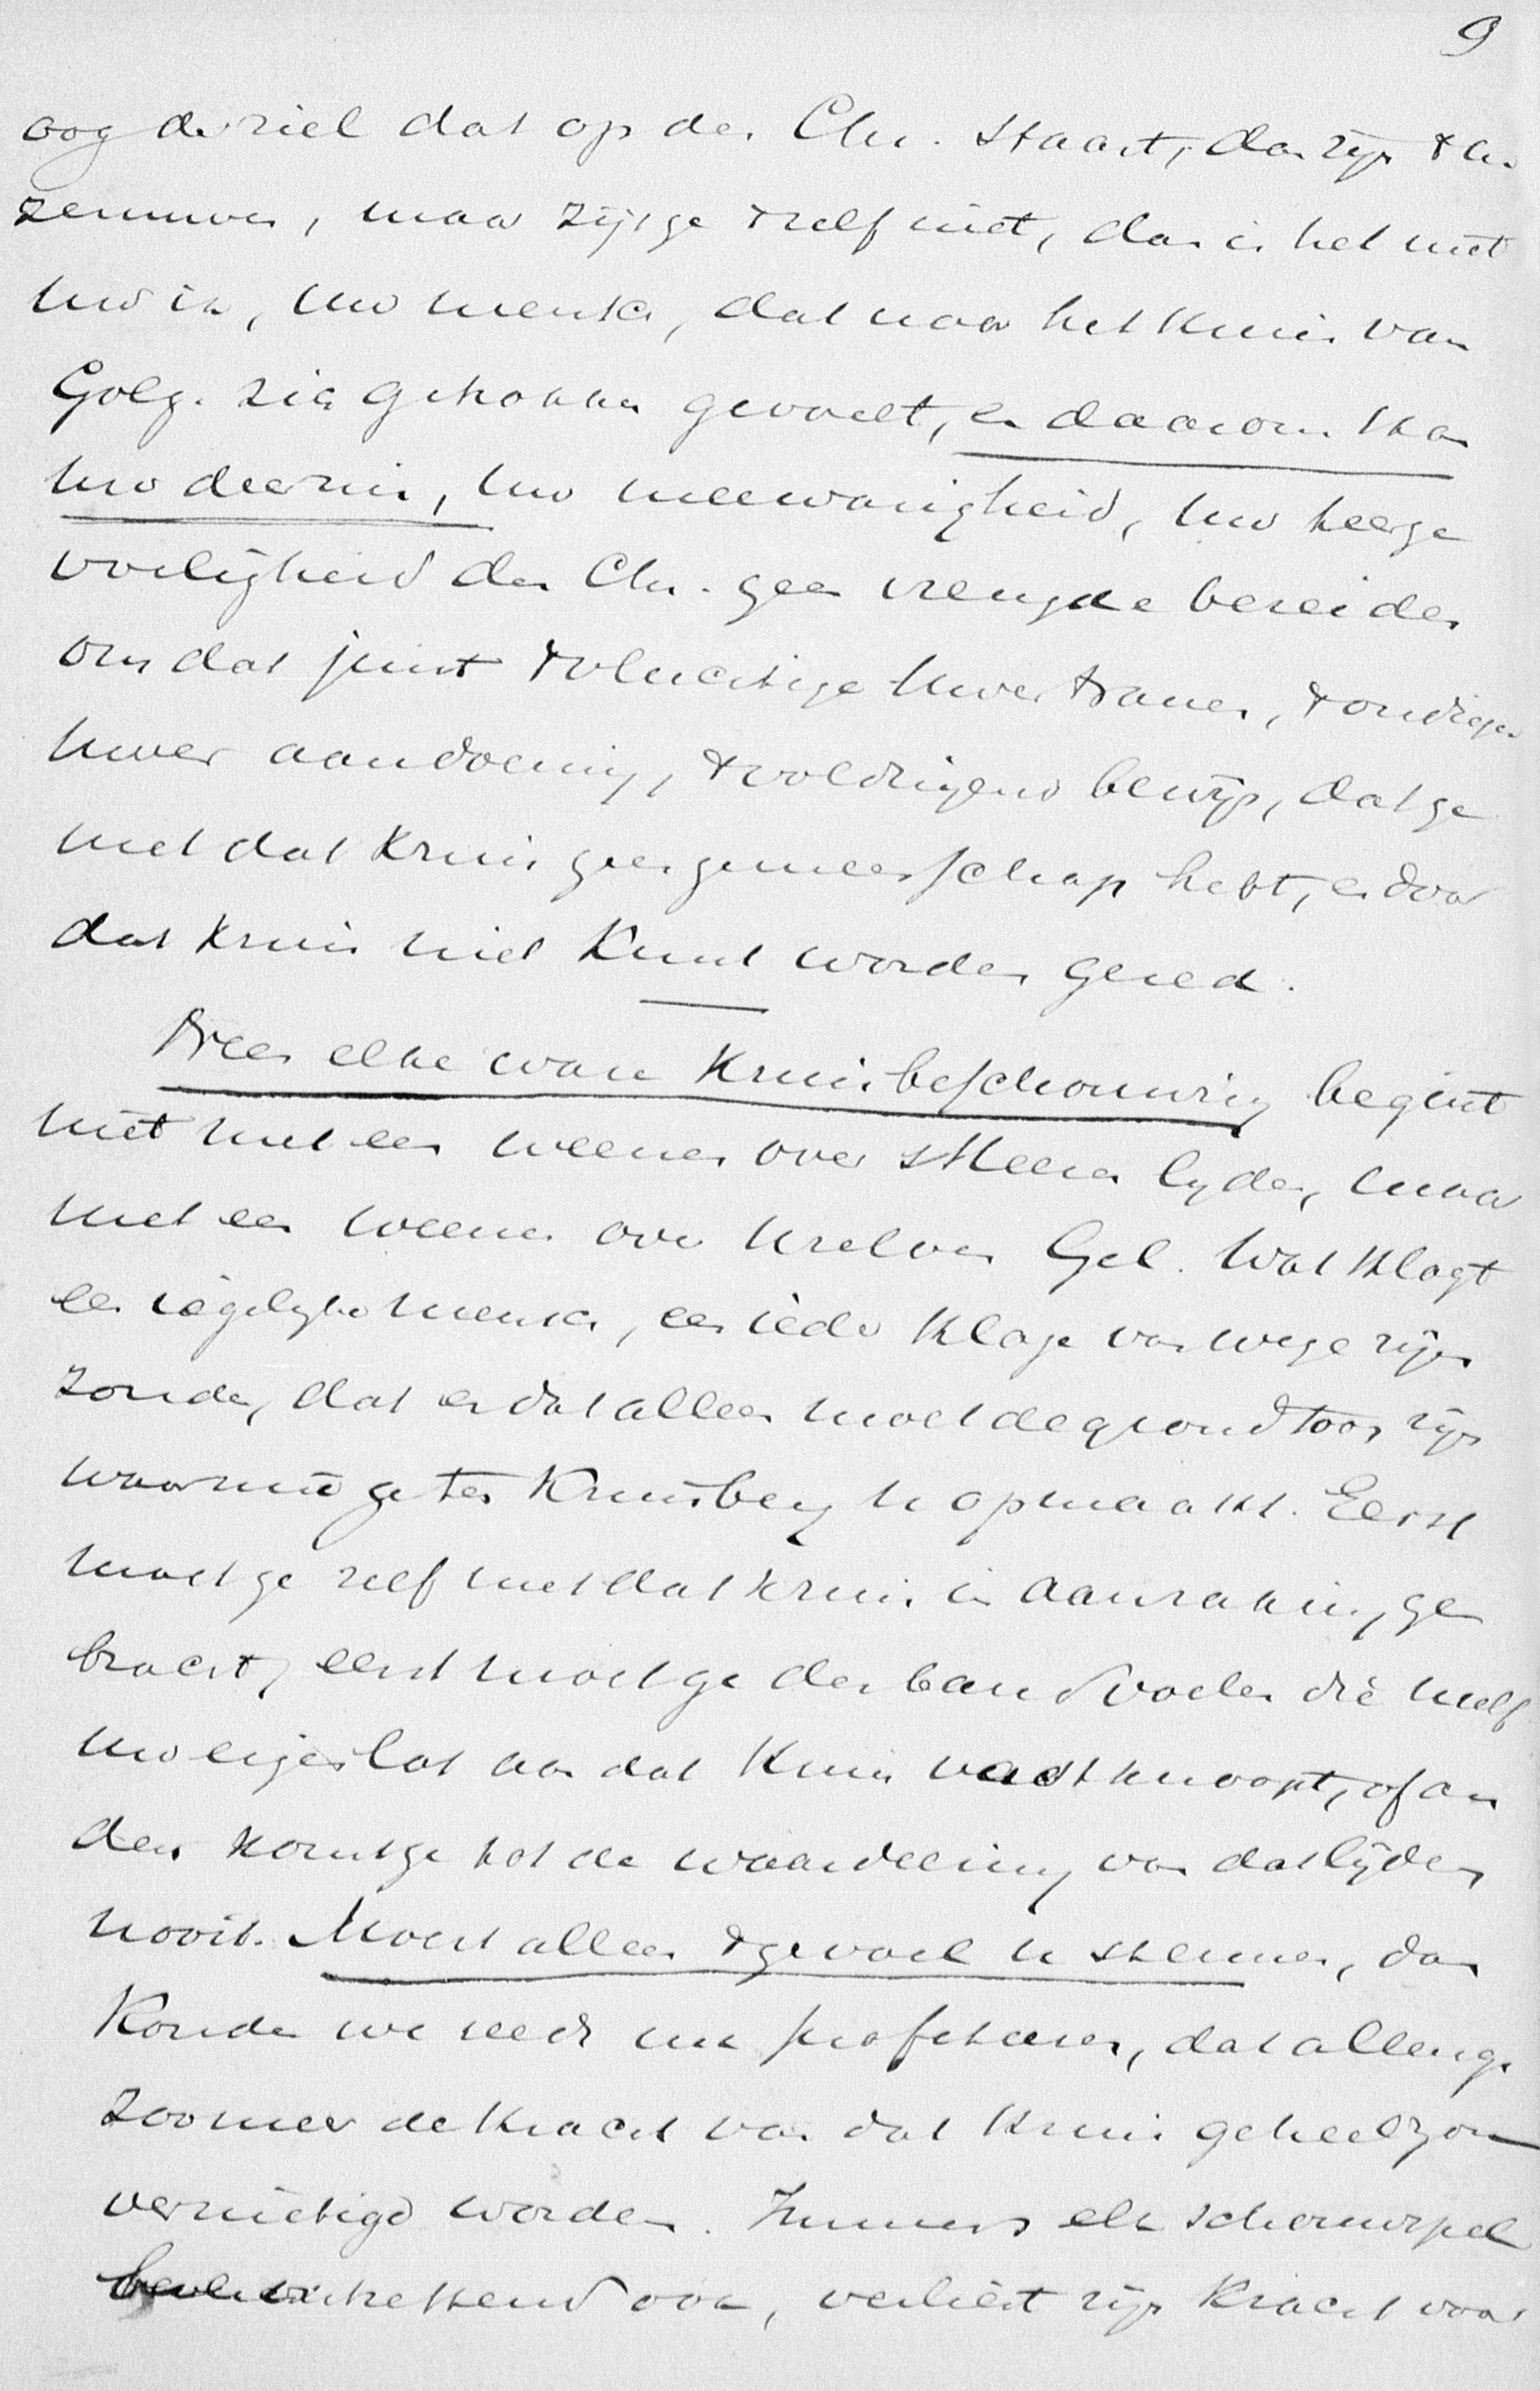 9
oog der ziel dat op den Chr. staart, dan zijn t uw
zenuwen, maar zijt ge t zelf niet, dan is het niet
uw ik, uw mensch, dat naar het kruis van
Golg. zich getrokken gevoelt, en daarom kan
uw deernis, uw meewarigheid, uw teerge
voeligheid den Chr. geen vreugde bereiden
omdat juist t vluchtige Uwer tranen, t ondiepe
Uwer aandoening, t voldingend bewijs, dat ge
met dat kruis geen gemeenschap hebt, en door
dat kruis niet kunt worden gered.
Neen elke ware kruisbeschouwing begint
niet met een weenen over s Heeren lyden, maar
met een weenen over Uzelven Gel. Wat klagt
een iegelyk mensch, een ieder klage van wege zijn
zonden, dat en dat alleen moet de grondtoon zijn
waarmeê ge ten Kruisberg u opmaakt. Eerst
moet ge zelf met dat kruis in aanraking ge
bracht, eerst moet ge den band voelen die uzelf
uw eigen lot aan dat kruis vastknoopt, of an
ders komt ge tot de waardeering van dat lijden
nooit. Moest alleen t gevoel u stemmen, dan
konden we reeds nu profeteeren, dat allengs
zoomeer de kracht van dat kruis geheel zou
vernietigd worden. Immers elk schouwspel
hoe ook, verliest zijn kracht voor